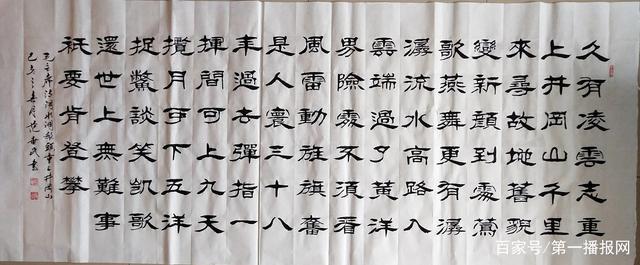 久有凌雲志重
上井岡山千里
來尋故地舊貌
變新顏到處鶯
歌燕舞更有潺
潺流水高路入
雲端過了黃洋
界險處不須看
風雷動旌旗奮
是人寰三十八
年過去彈指一
揮間可上九天
攬月可下五洋
捉鱉談笑凱歌
還世上無難事
祇要肯登攀
毛主席詩詞水調歌頭重上井岡山
己亥之春月范書
百家号/第一播报网